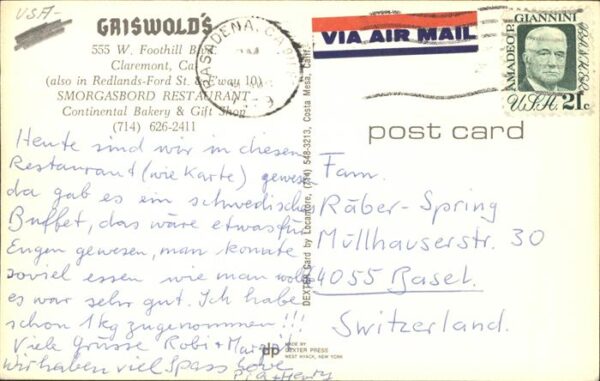 USA-
GRISWOLD'S
555 W. Foothill
Claremont, Ca
(also in Redlands-Ford St. & F'way 10)
SMORGASBORD RESTAURANT
Continental Bakery & Gift Shop
(714) 626-2411
Heute sind wir in diesem
Restaurant (wie Karte) gewesen
da gab es ein schwedisches
Buffet, das wäre etwas für
Eugen gewesen, man konnte
soviel essen wie man wollte
es war sehr gut. Ich habe
schon 1 kg zugenommen!!!
Viele Grüsse Robi + Margi
wir haben viel Spass Love
+ Henry
DEXTER Card by Locantore, (714) 548-3213, Costa Mesa, Calif.
dp
MADE BY
DEXTER PRESS
WEST NYACK, NEW YORK
PASADENA, CA
VIA AIR MAIL
AMADEO P. GIANNINI
USA 21c
post card
Fam.
Räber-Spring
Müllhauserstr. 30
4055 Basel
Switzerland.